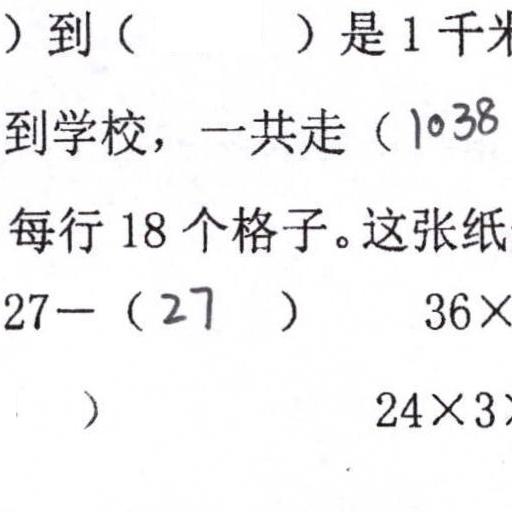 ）到（ ）是1千米
到学校，一共走（1038
每行18个格子。这张纸
27－（27 ） 36×
） 24×3×